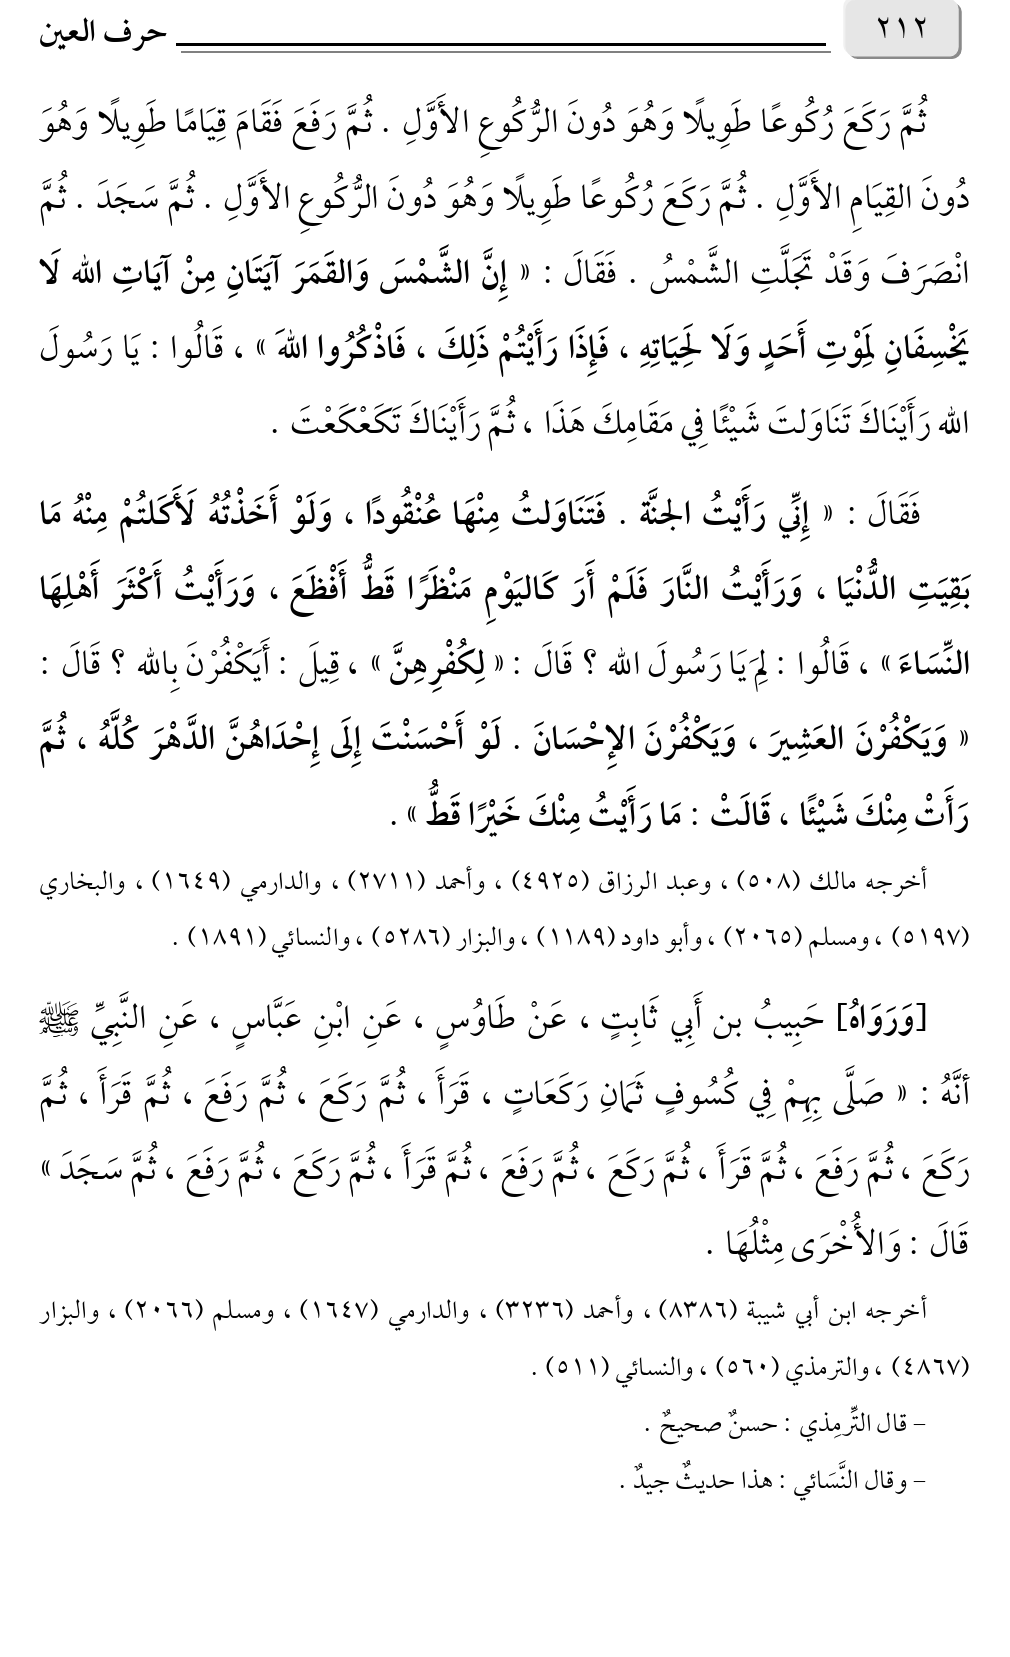 ٢١٢
حرف العين
ثُمَّ رَكَعَ رُكُوعًا طَوِيلًا وَهُوَ دُونَ الرُّكُوعِ الأَوَّلِ . ثُمَّ رَفَعَ فَقَامَ قِيَامًا طَوِيلًا وَهُوَ
دُونَ القِيَامِ الأَوَّلِ . ثُمَّ رَكَعَ رُكُوعًا طَوِيلًا وَهُوَ دُونَ الرُّكُوعِ الأَوَّلِ . ثُمَّ سَجَدَ . ثُمَّ
انْصَرَفَ وَقَدْ تَجَلَّتِ الشَّمْسُ . فَقَالَ : « إِنَّ الشَّمْسَ وَالقَمَرَ آيَتَانِ مِنْ آيَاتِ الله لَا
يَخْسِفَانِ لِمَوْتِ أَحَدٍ وَلَا لِحَيَاتِهِ ، فَإِذَا رَأَيْتُمْ ذَلِكَ ، فَاذْكُرُوا اللهَ » ، قَالُوا : يَا رَسُولَ
الله رَأَيْنَاكَ تَنَاوَلتَ شَيْئًا فِي مَقَامِكَ هَذَا ، ثُمَّ رَأَيْنَاكَ تَكَعْكَعْتَ .
فَقَالَ : « إِنِّي رَأَيْتُ الجنَّة . فَتَنَاوَلتُ مِنْهَا عُنْقُودًا ، وَلَوْ أَخَذْتُهُ لَأَكَلتُمْ مِنْهُ مَا
بَقِيَتِ الدُّنْيَا ، وَرَأَيْتُ النَّارَ فَلَمْ أَرَ كَاليَوْمِ مَنْظَرًا قَطُّ أَفْظَعَ ، وَرَأَيْتُ أَكْثَرَ أَهْلِهَا
النِّسَاءَ » ، قَالُوا : لِمَ يَا رَسُولَ الله ؟ قَالَ : « لِكُفْرِهِنَّ » ، قِيلَ : أَيَكْفُرْنَ بِالله ؟ قَالَ :
« وَيَكْفُرْنَ العَشِيرَ ، وَيَكْفُرْنَ الإِحْسَانَ . لَوْ أَحْسَنْتَ إِلَى إِحْدَاهُنَّ الدَّهْرَ كُلَّهُ ، ثُمَّ
رَأَتْ مِنْكَ شَيْئًا ، قَالَتْ : مَا رَأَيْتُ مِنْكَ خَيْرًا قَطُّ » .
أخرجه مالك (٥٠٨) ، وعبد الرزاق (٤٩٢٥) ، وأحمد (٢٧١١) ، والدارمي (١٦٤٩) ، والبخاري
(٥١٩٧) ، ومسلم (٢٠٦٥) ، وأبو داود (١١٨٩) ، والبزار (٥٢٨٦) ، والنسائي (١٨٩١) .
[وَرَوَاهُ] حَبِيبُ بن أَبِي ثَابِتٍ ، عَنْ طَاوُسٍ ، عَنِ ابْنِ عَبَّاسٍ ، عَنِ النَّبِيِّ ﷺ
أنَّهُ : « صَلَّى بِهِمْ فِي كُسُوفٍ ثَمَانِ رَكَعَاتٍ ، قَرَأَ ، ثُمَّ رَكَعَ ، ثُمَّ رَفَعَ ، ثُمَّ قَرَأَ ، ثُمَّ
رَكَعَ ، ثُمَّ رَفَعَ ، ثُمَّ قَرَأَ ، ثُمَّ رَكَعَ ، ثُمَّ رَفَعَ ، ثُمَّ قَرَأَ ، ثُمَّ رَكَعَ ، ثُمَّ رَفَعَ ، ثُمَّ سَجَدَ »
قَالَ : وَالأُخْرَى مِثْلُهَا .
أخرجه ابن أبي شيبة (٨٣٨٦) ، وأحمد (٣٢٣٦) ، والدارمي (١٦٤٧) ، ومسلم (٢٠٦٦) ، والبزار
(٤٨٦٧) ، والترمذي (٥٦٠) ، والنسائي (٥١١) .
– قال التِّرمِذي : حسنٌ صحيحٌ .
– وقال النَّسَائي : هذا حديثٌ جيدٌ .